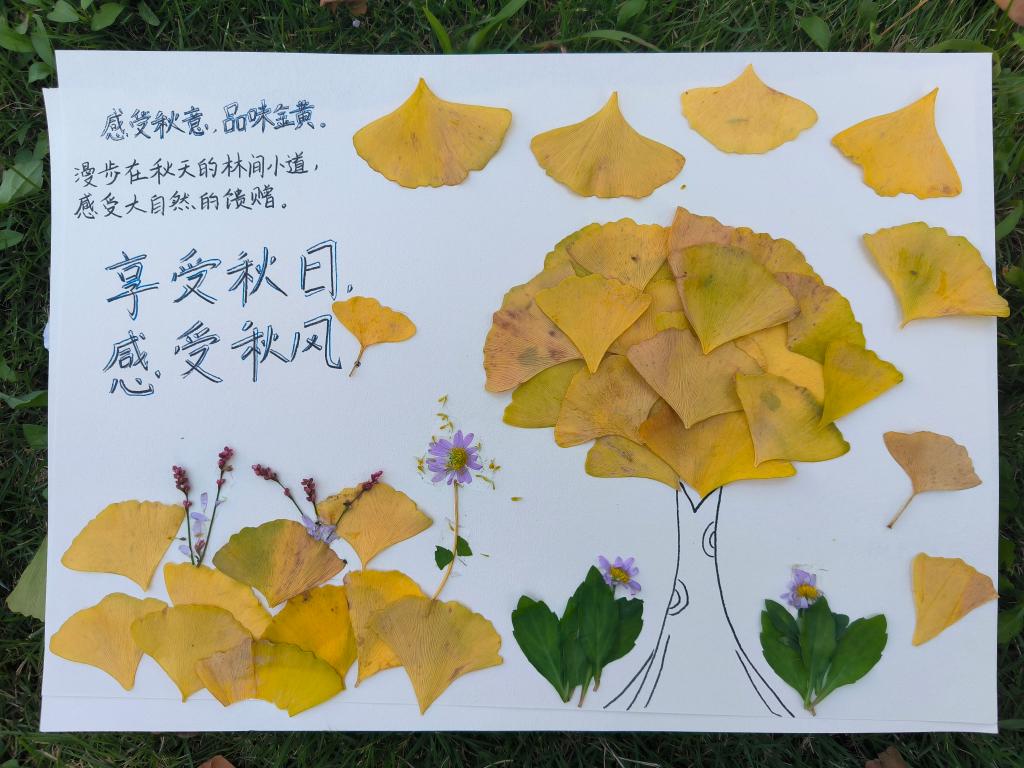 感受秋意，品味金黄。
漫步在秋天的林间小道，
感受大自然的馈赠。
享受秋日，
感受秋风